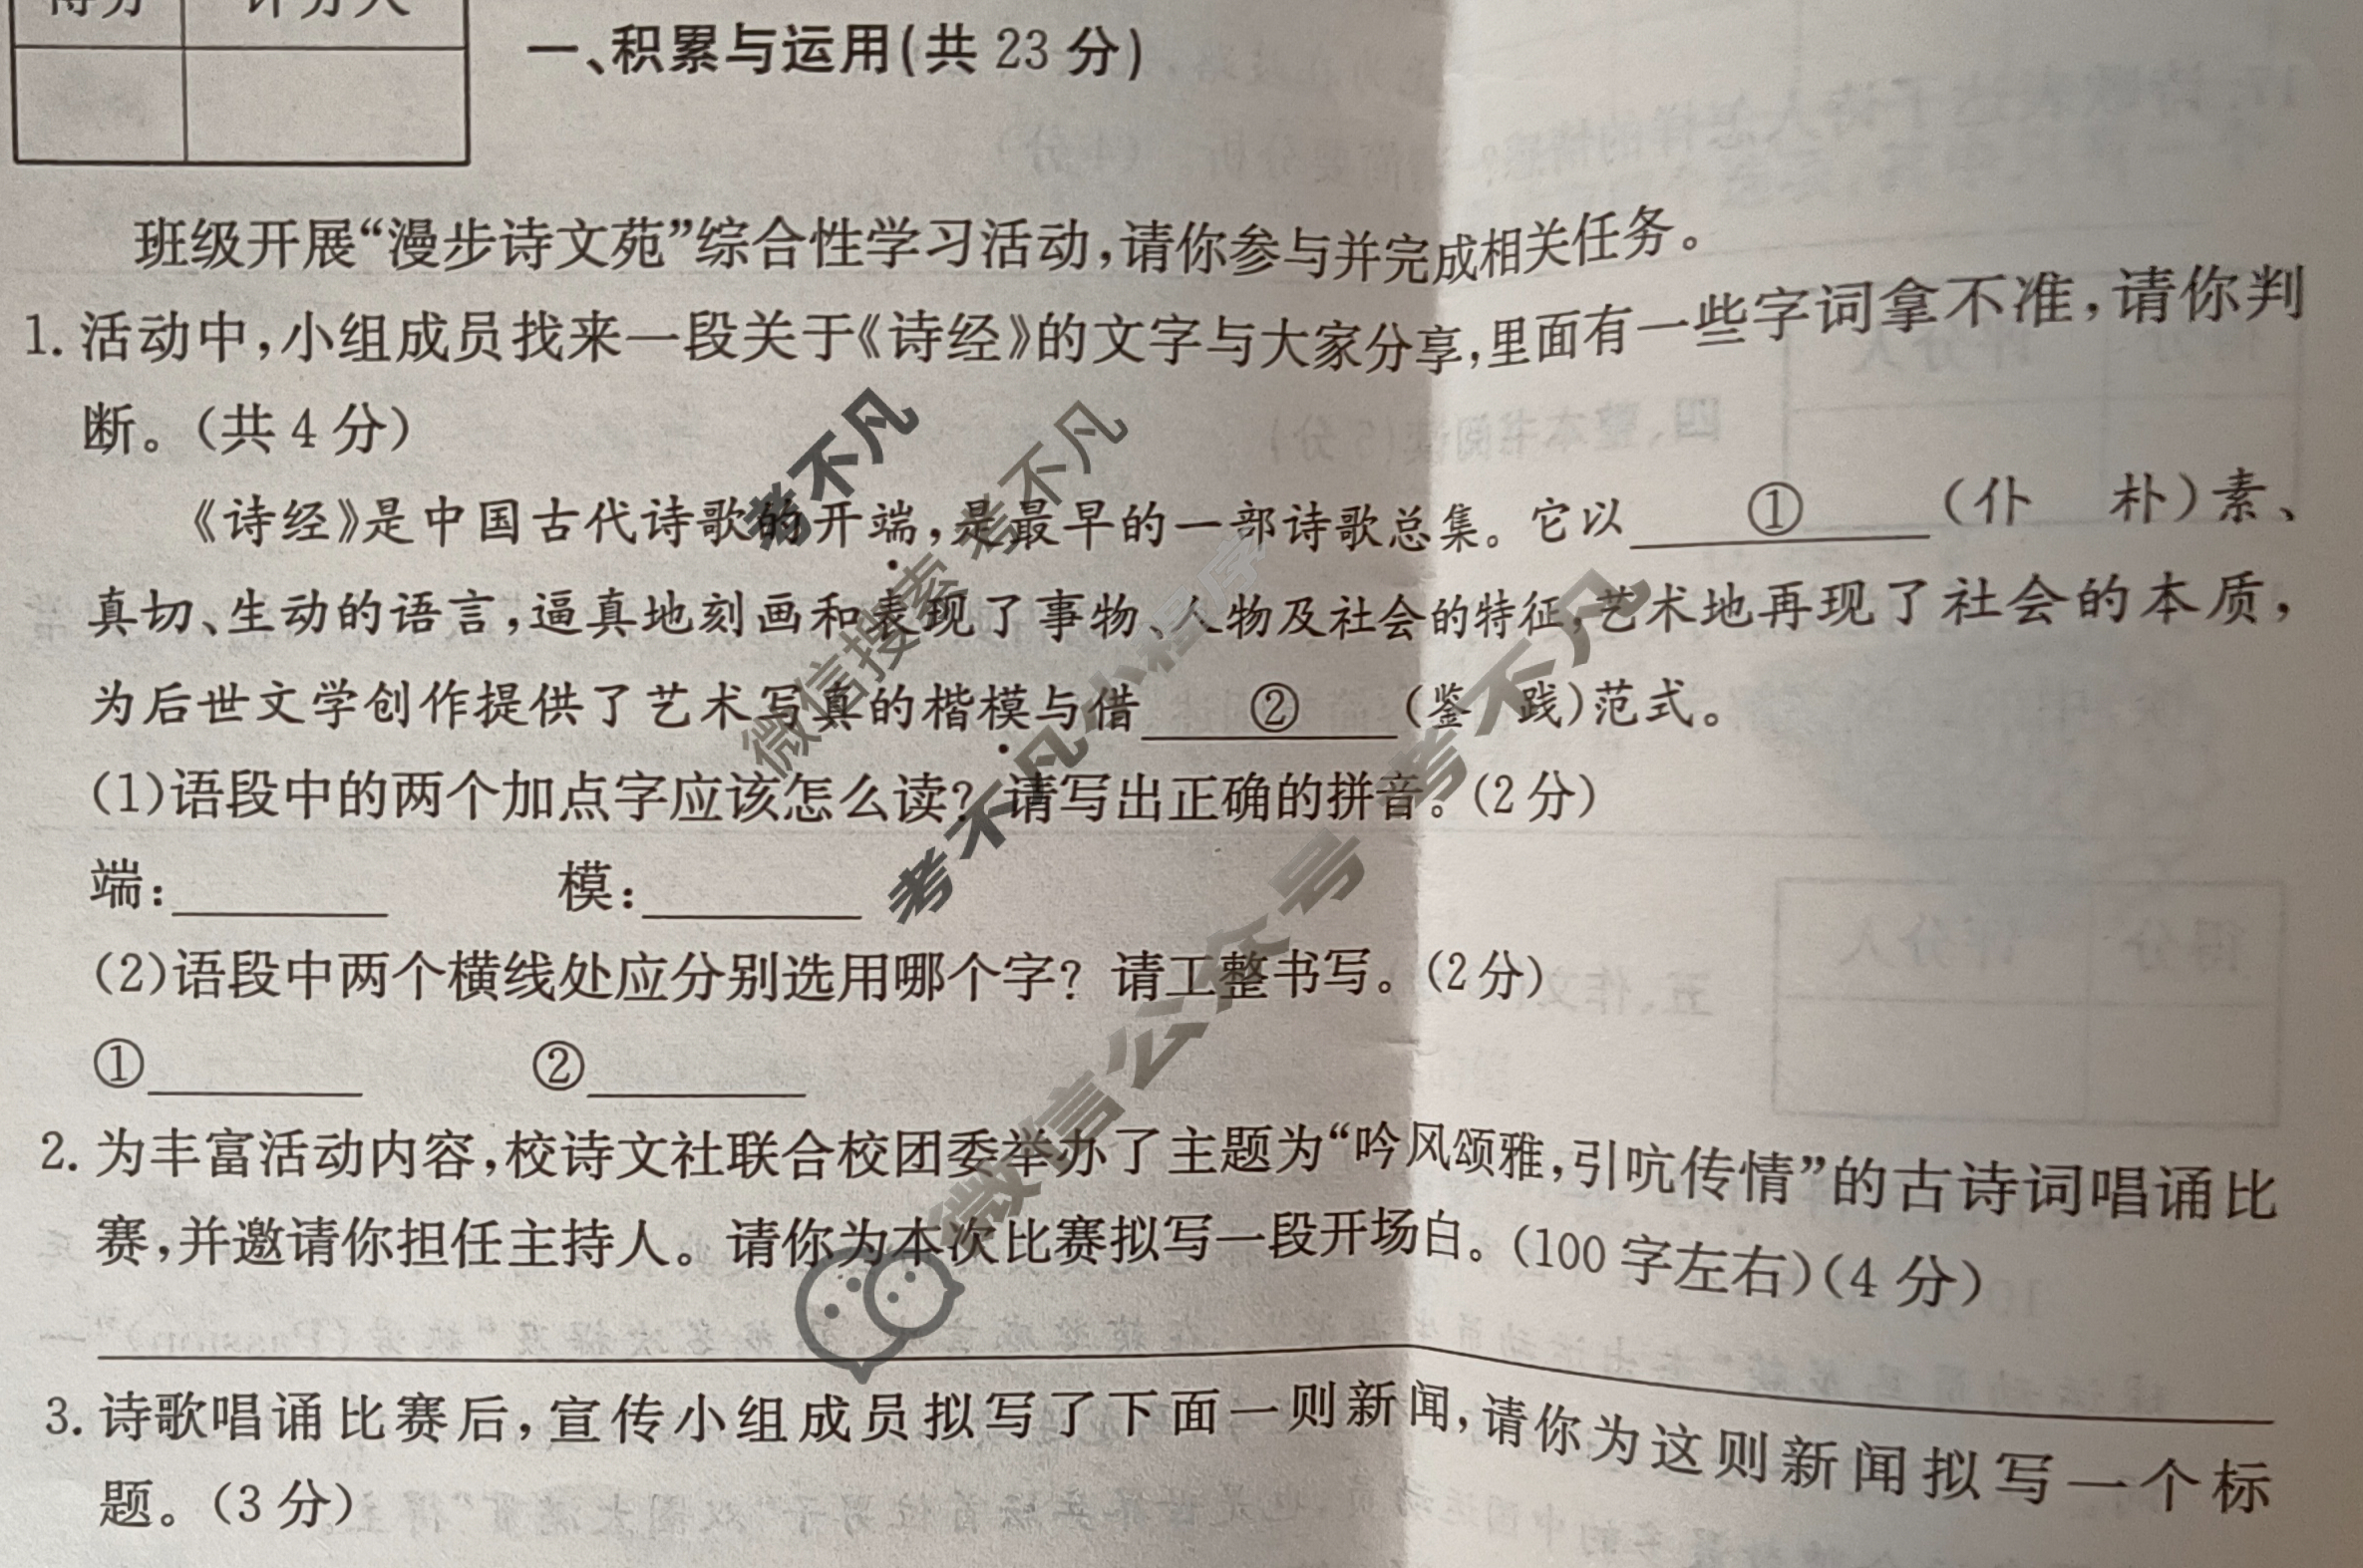 得分 评分人
一、积累与运用(共 23 分)
班级开展“漫步诗文苑”综合性学习活动,请你参与并完成相关任务。
1. 活动中,小组成员找来一段关于《诗经》的文字与大家分享,里面有一些字词拿不准,请你判
断。(共 4 分)
《诗经》是中国古代诗歌的开端,是最早的一部诗歌总集。它以 ① (仆 朴)素、
真切、生动的语言,逼真地刻画和表现了事物、人物及社会的特征,艺术地再现了社会的本质,
为后世文学创作提供了艺术写真的楷模与借 ② (鉴 践)范式。
(1)语段中的两个加点字应该怎么读? 请写出正确的拼音。(2 分)
端: 模:
(2)语段中两个横线处应分别选用哪个字? 请工整书写。(2 分)
① ②
2. 为丰富活动内容,校诗文社联合校团委举办了主题为“吟风颂雅,引吭传情”的古诗词唱诵比
赛,并邀请你担任主持人。请你为本次比赛拟写一段开场白。(100 字左右)(4 分)
3. 诗歌唱诵比赛后,宣传小组成员拟写了下面一则新闻,请你为这则新闻拟写一个标
题。(3 分)
考不凡
微信搜索 考不凡
考不凡小程序
微信公众号 考不凡